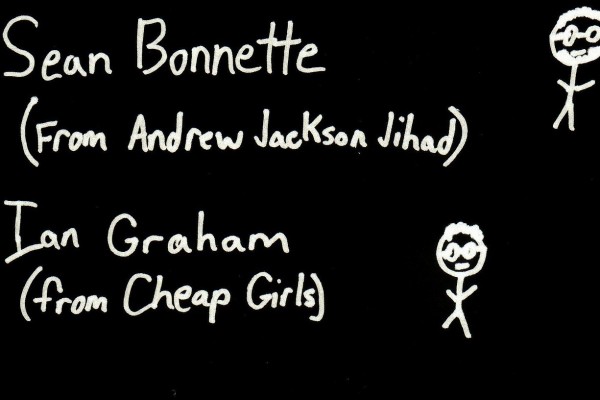 Sean Bonnette
(From Andrew Jackson Jihad)
Ian Graham
(from Cheap Girls)